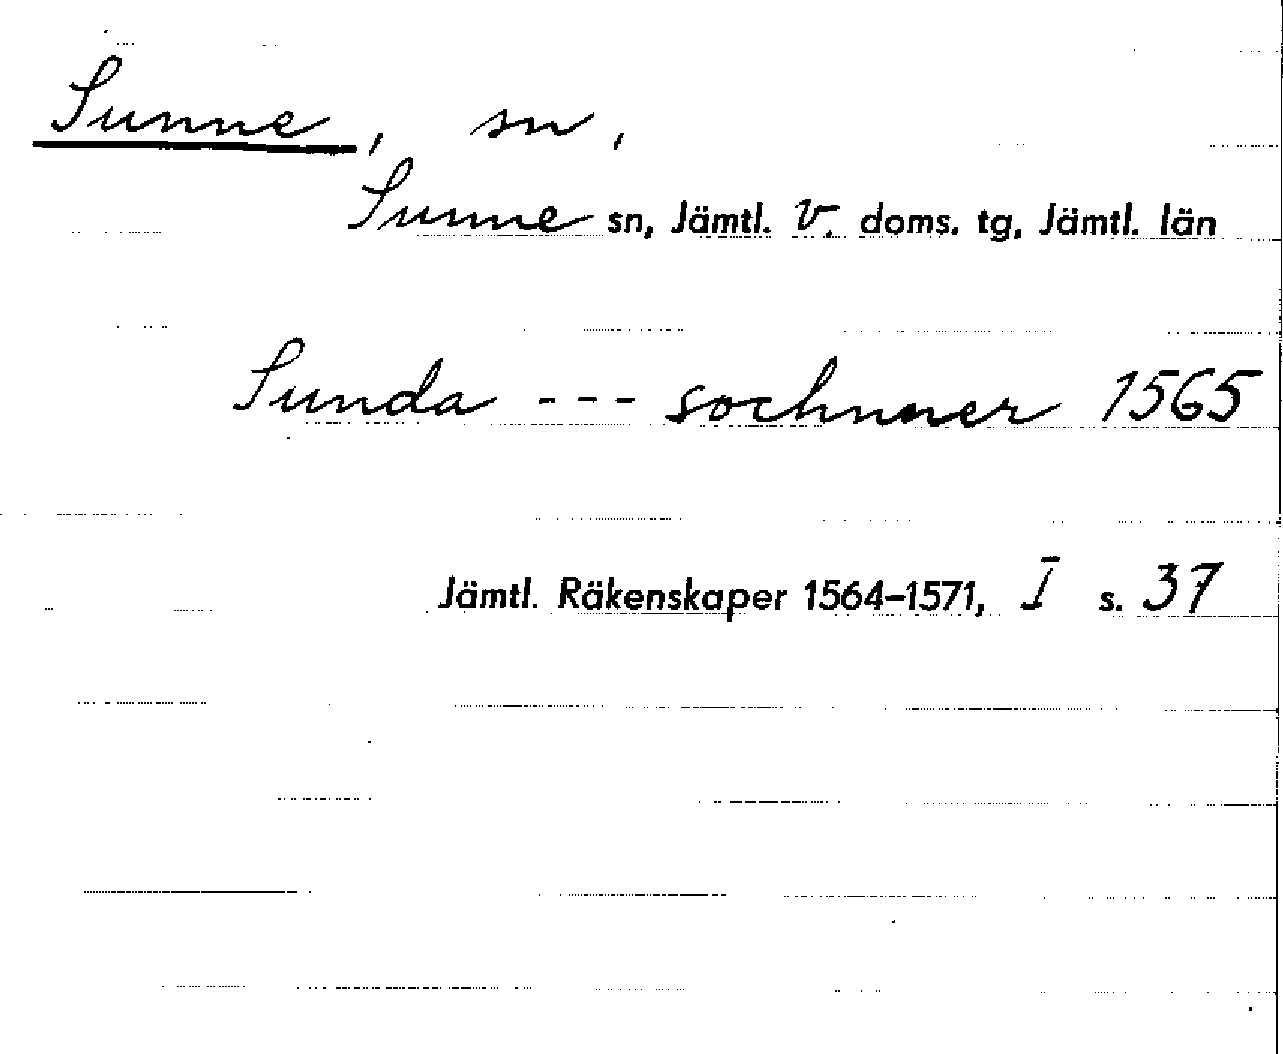 Sunne, sn,
Sunne sn, Jämtl. V. doms. tg, Jämtl. län
Sunda --- sochnner 1565
Jämtl. Räkenskaper 1564-1571, I s. 37